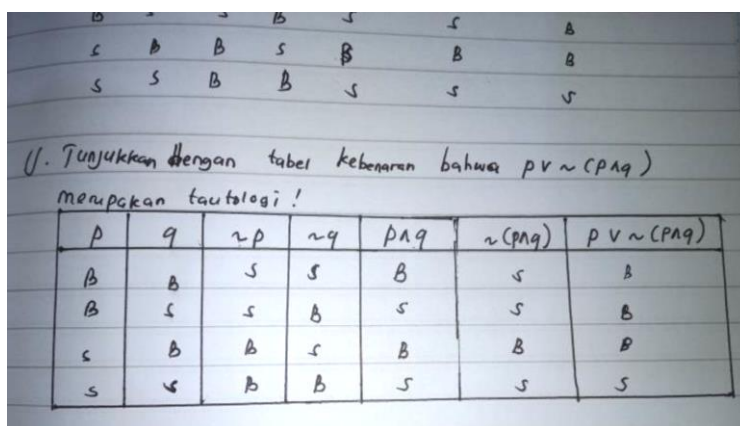 B S S B S S B
S B B S B B B
S S B B S S S
11. Tunjukkan dengan tabel kebenaran bahwa p ∨ ~ (p∧q)
merupakan tautologi !
p q ~p ~q p∧q ~(p∧q) p ∨ ~(p∧q)
B B S S B S B
B S S B S S B
S B B S B B B
S S B B S S S